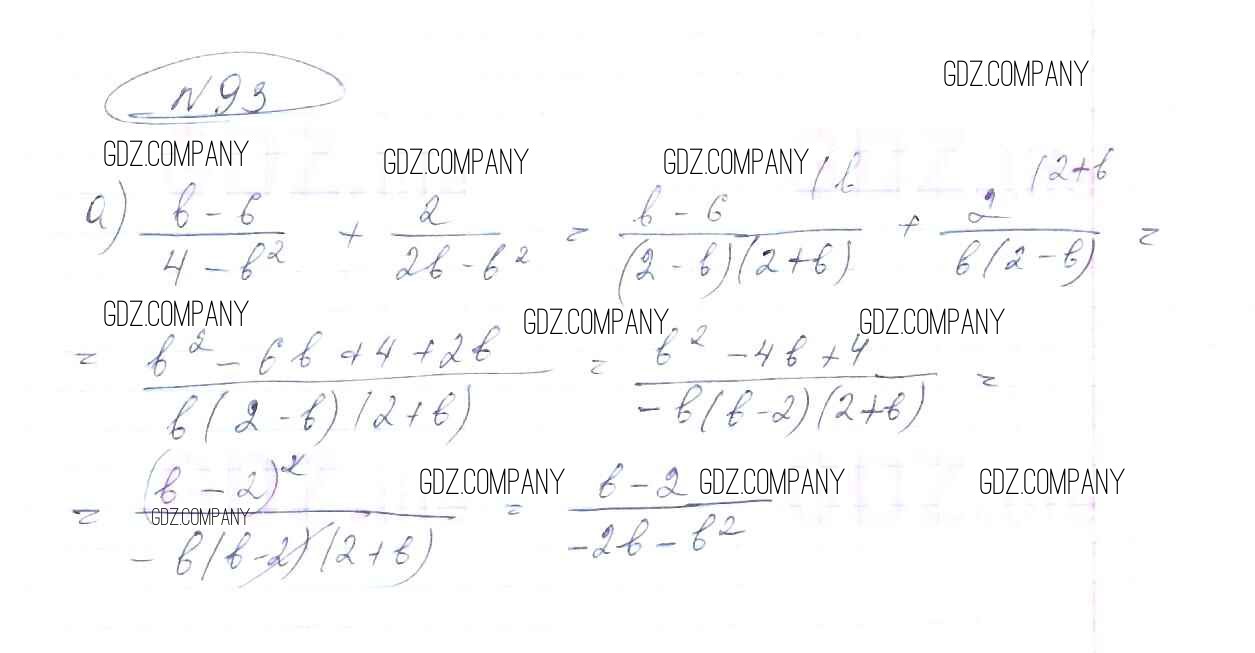 №93
GDZ.COMPANY
GDZ.COMPANY GDZ.COMPANY GDZ.COMPANY
а) (b - 6)/(4 - b²) + 2/(2b - b²) = (b - 6)/((2 - b)(2 + b)) /b + 2/(b(2 - b)) /2+b =
GDZ.COMPANY GDZ.COMPANY GDZ.COMPANY
= (b² - 6b + 4 + 2b)/(b(2 - b)(2 + b)) = (b² - 4b + 4)/(-b(b - 2)(2 + b)) =
GDZ.COMPANY GDZ.COMPANY GDZ.COMPANY
GDZ.COMPANY
= (b - 2)²/(-b(b - 2)(2 + b)) = (b - 2)/(-2b - b²)